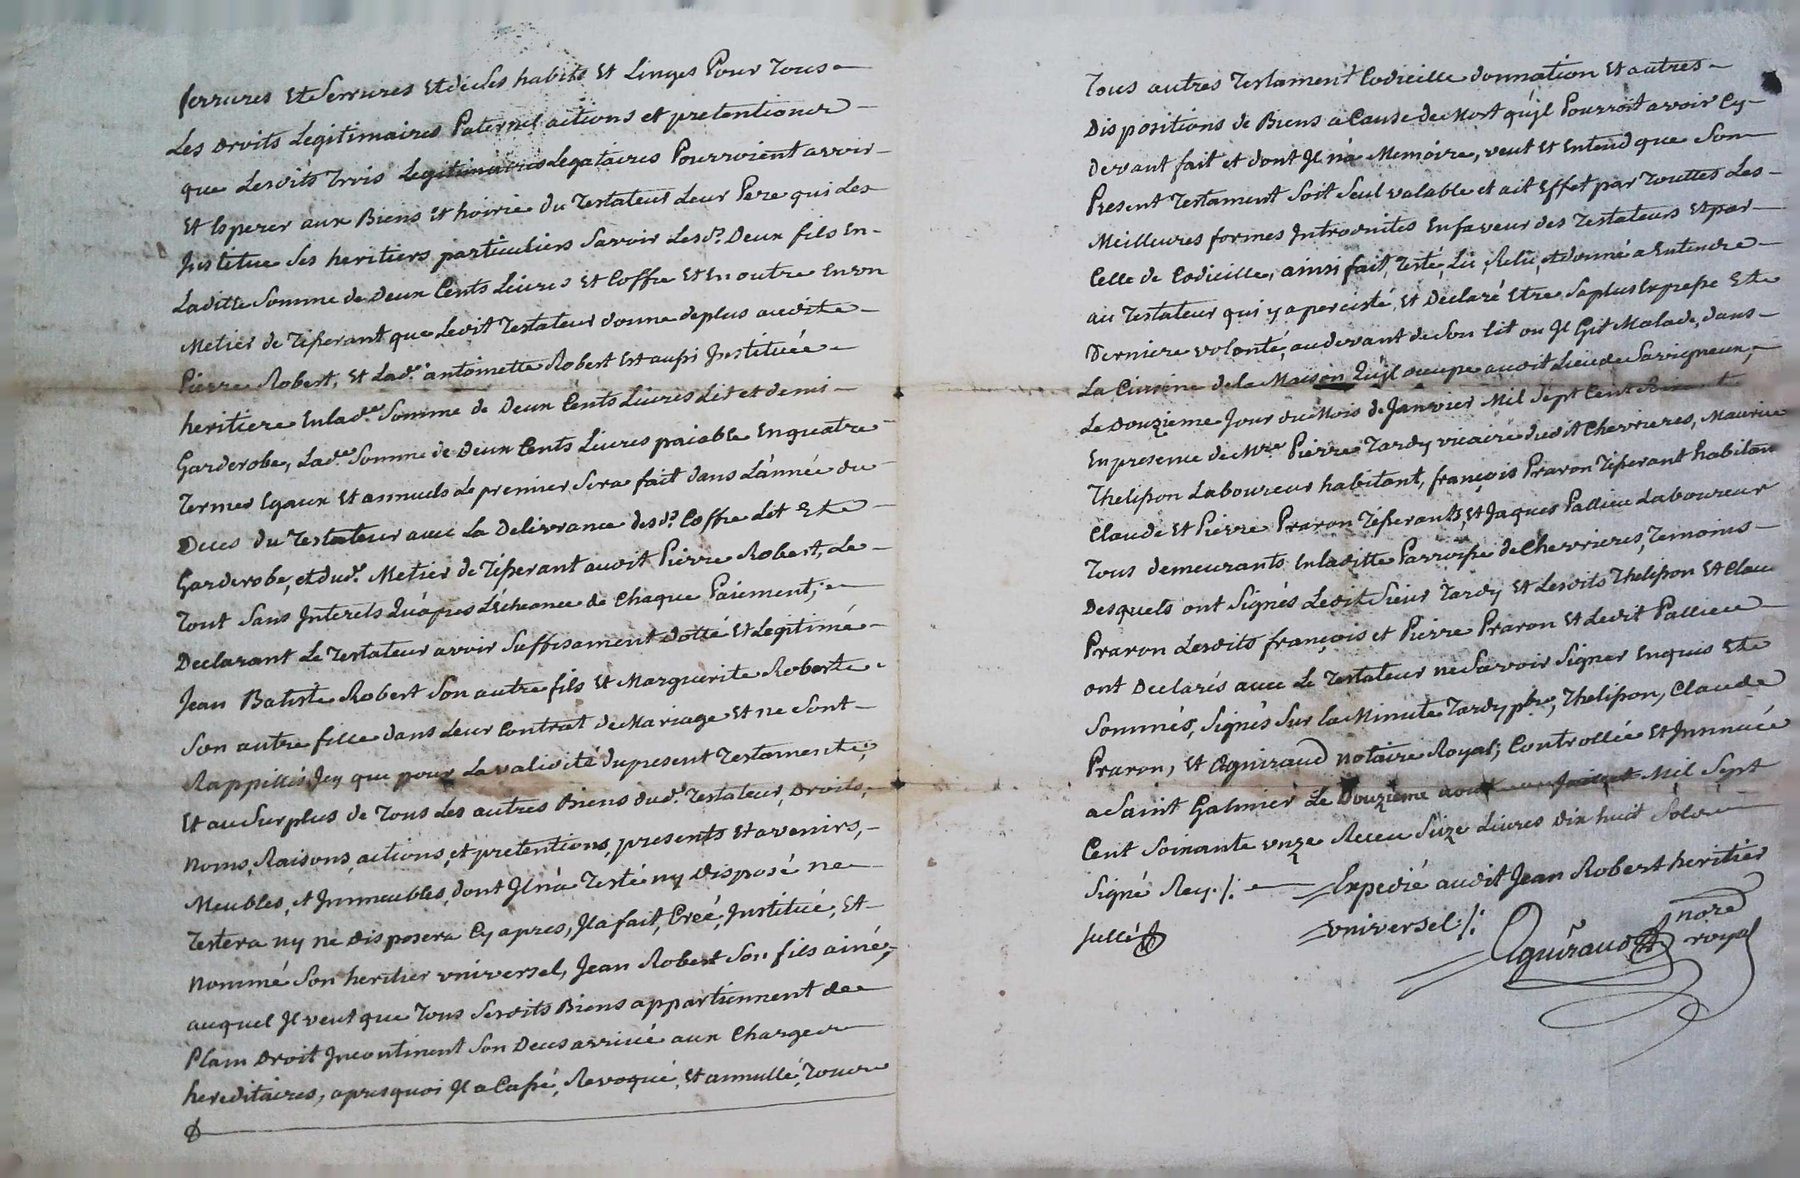 ferrures Et Serrures Et de ses habits Et Linges Pour Tous
Les Droits Legitimaires Paternel actions et pretentions
que Lesdits Trois Legataires Pourroient avoir
Et Esperer aux Biens Et hoirie du Testateur Leur Pere qui Les
Institue Ses heritiers particuliers Savoir Lesd.s Deux fils En
Laditte Somme de Deux Cents Livres Et Coffre Et En outre En son
Metier de Tisserant que Ledit Testateur donne de plus audit
Pierre Robert, Et Lad.e antoinette Robert Est aussi Instituée
heritiere En lad.e Somme de Deux Cents Livres Lit et demi
Garderobe, Lad.e Somme de Deux Cents Livres paiable En quatre
Termes Egaux Et annuels Le premier Sera fait dans L'année du
Deces du Testateur avec La Delivrance desd.s Coffre Lit Et
Garderobe, et dud.t Metier de Tisserant audit Pierre Robert, Le
Tout Sans Interets Qu'apres L'écheance de Chaque Paiement,
Declarant Le Testateur avoir Suffisament dotté Et Legitimé
Jean Batiste Robert Son autre fils Et Marguerite Robert
Son autre fille dans Leur Contrat de Mariage Et ne Sont
Rappellés Icy que pour La validité du present Testament,
Et au Surplus de Tous Les autres Biens dud.t Testateur, Droits,
Noms, Raisons, actions, et pretentions, presents Et avenirs,
Meubles, et Immeubles, dont Il n'a Testé ny Disposé ne
Testera ny ne Disposera Cy apres, Il a fait, Creé, Institué, Et
Nommé Son heritier universel, Jean Robert Son fils ainé,
auquel Il veut que Tous Sesdits Biens appartiennent de
Plain Droit Incontinent Son Deces arrivé aux Charges
hereditaires, apres quoi Il a Cassé, Revoqué, Et annullé, Tous
Tous autres Testament Codicille donnation Et autres
Dispositions de Biens a Cause de Mort qu'il Pourroit avoir Cy
Devant fait et dont Il n'a Memoire, veut Et Entend que Son
Present Testament Soit Seul valable et ait Effet par Touttes Les
Meilleures formes Introduites En faveur des Testateurs Et par
Celle de Codicille, ainsi fait, Testé, Lu, Relu, et donné a Entendre
au Testateur qui y a percisté, Et Declaré Etre Sa plus Expresse Et
Derniere volonté, au devant de Son Lit ou Il Git Malade, dans
La Cuisine de la Maison Qu'il occupe audit Lieu de Savigneux,
Le Douzieme Jour du Mois de Janvier Mil Sept Cent
En presence de M.re Pierre Tardy vicaire dudit Chevrieres, Maurice
Thelisson Laboureur habitant, françois Praron Tisserant habitan
Claude Et Pierre Praron Tisserants, Et Jaques Pallieu Laboureur
Tous demeurants En laditte Parroisse de Chevrieres, Temoins
Desquels ont Signés Ledit Sieur Tardy Et Lesdits Thelisson Et Clau
Praron Lesdits françois et Pierre Praron Et Ledit Pallieu
ont Declarés avec Le Testateur ne Savoir Signer Enquis Et
Sommés, Signés Sur la Minute Tardy pbre, Thelisson, Claude
Praron, Et Aguiraud Notaire Royal, Controllée Et Insinuée
a Saint Galmier Le Douzieme Mil Sept
Cent Soixante onze Receu Seize Livres dix huit Sols
Signé Rey ./. Expedié audit Jean Robert heritier
universel ./.
sellé
Aguiraud nore
royal